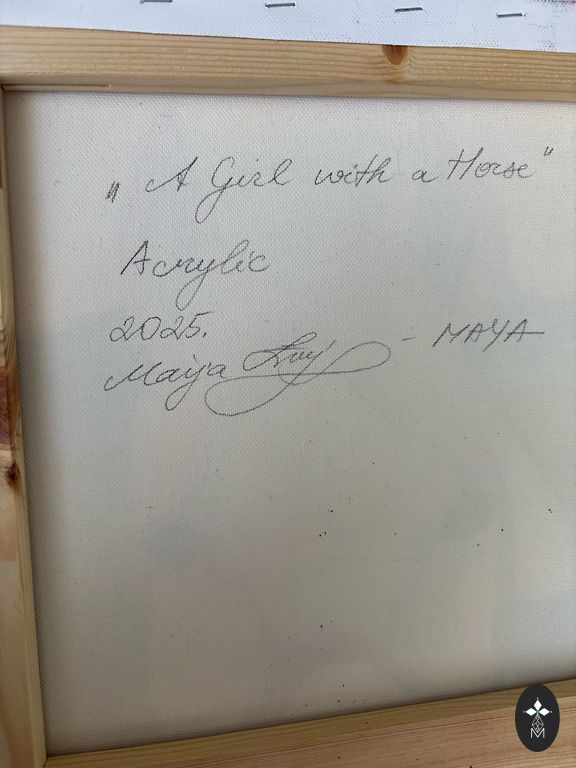 „ A Girl with a Horse"
Acrylic
2025.
Maija - MAYA
M